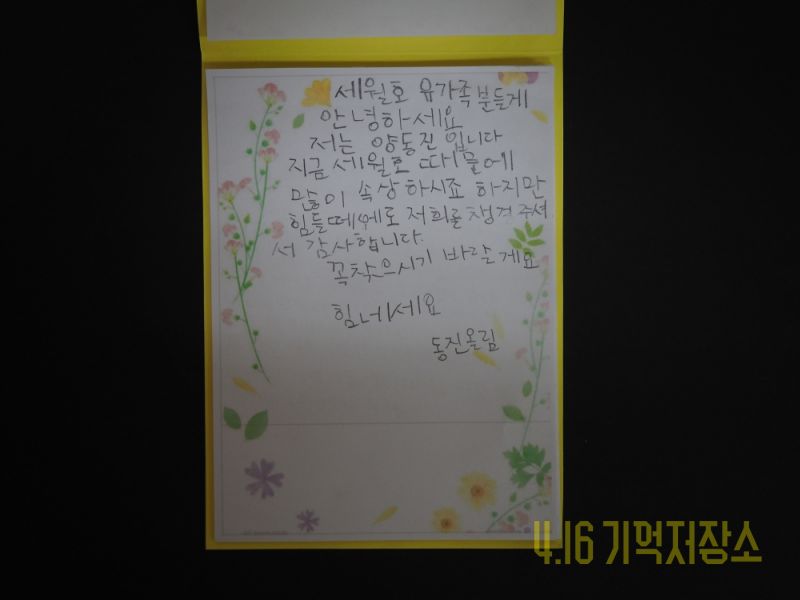 세월호 유가족분들게
안녕하세요
저는 양동진입니다
지금 세월호 따문에
많이 속상하시죠 하지만
힘들떼에도 저희를 챙겨주셔
서 감사합니다.
꼭 착으시기 바랄게요
힘네세요
동진올림
4.16 기억저장소